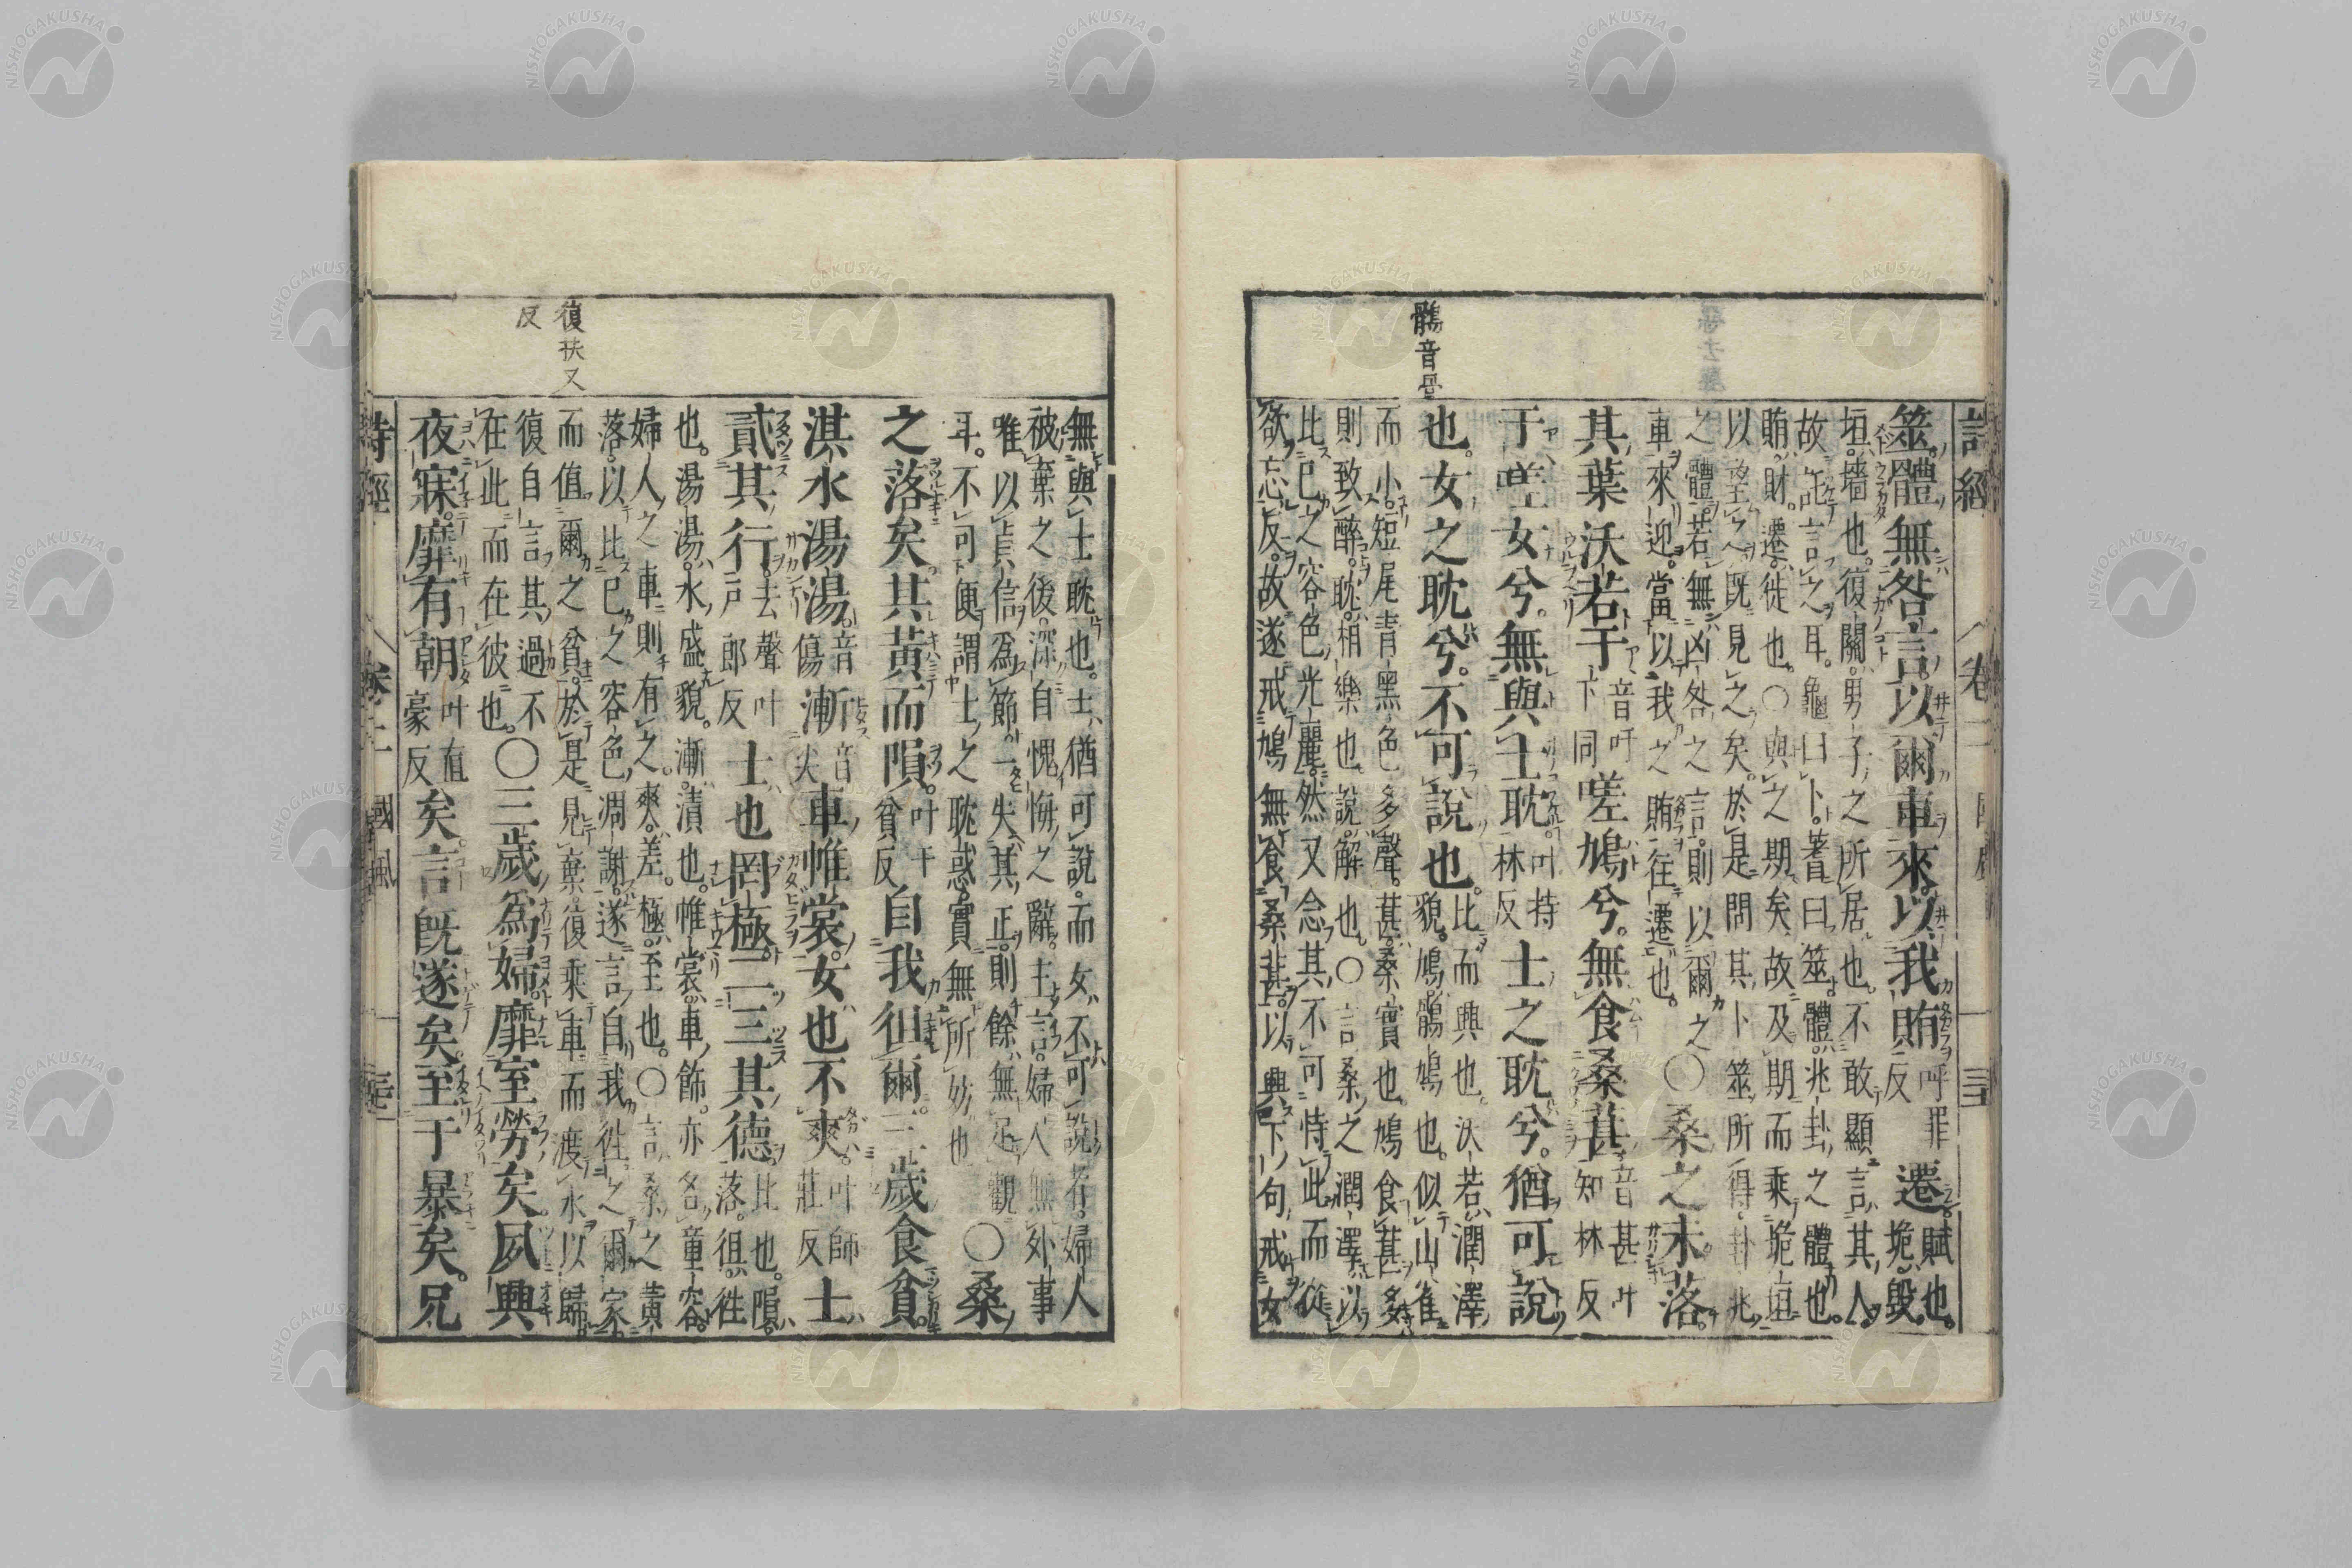 詩經 卷二 國風 三十
筮。體無咎言。以爾車來。以我賄呼罪反遷。賦也。垝。毀。
垣。墻也。復關。男子之所居也。不敢顯言其人。
故託言之耳。龜曰卜。蓍曰筮。體。兆卦之體也。
賄。財。遷。徙也。○與之期矣。故及期而乘垝垣
以望之。既見之矣。於是問其卜筮所得卦兆
之體。若無凶咎之言。則以爾之
車來迎。當以我之賄往遷也。○桑之未落。
其葉沃若。于音吁下同嗟鳩兮。無食桑葚音甚叶知林反
于嗟女兮。無與士耽叶持林反士之耽兮。猶可說
也。女之耽兮。不可說也。比而興也。沃若。潤澤
貌。鳩。鶻鳩也。似山雀
而小。短尾青黑色多聲。葚。桑實也。鳩食葚多
則致醉。耽。相樂也。說。解也。○言桑之潤澤。以
比己之容色光麗。然又念其不可恃此而從
欲忘反。故遂戒鳩無食桑葚。以興下句戒女
鶻音骨
無與士耽也。士猶可說。而女不可說者。婦人
被棄之後。深自愧悔之辭。主言婦人無外事
唯以貞信爲節。一失其正。則餘無足觀
耳。不可便謂士之耽惑實無所妨也○桑
之落矣。其黃而隕。叶于貧反自我徂爾。三歲食貧。
淇水湯湯。音傷漸音尖車帷裳。女也不爽。叶師莊反士
貳其行。去聲叶戸郎反士也罔極。二三其德。比也。隕。
落。徂。往
也。湯湯。水盛貌。漸。漬也。帷裳。車飾。亦名童容
婦人之車則有之。爽。差。極。至也。○言桑之黃
落。以比己之容色凋謝。遂言自我往之爾家
而值爾之貧。於是見棄。復乘車而渡水以歸
復自言其過不
在此而在彼也。○三歲爲婦。靡室勞矣。夙興
夜寐。靡有朝叶直豪反矣。言既遂矣。至于暴矣。兄
復扶又
反
詩經 卷二 國風